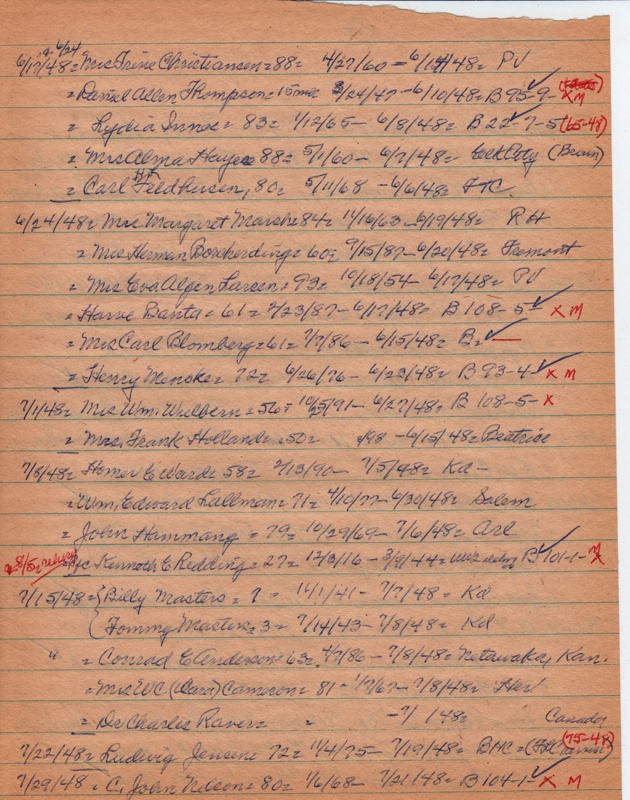 & 6/24
6/17/48 = Mrs Trine Christiansen = 88 = 4/27/60 - 6/14/48 = PV
= Daniel Allen Thompson = 15 mo = 3/24/47 - 6/10/48 = B 95-9- x M
= Lydia = 83 = 1/12/65 - 6/8/48 = B 22-7-5 (65-48)
= Mrs Alma Hayes 88 = 5/1/60 - 6/7/48 = (Beam)
= Carl Feldhusen, 80 = 5/11/68 - 6/6/48 =
6/24/48 = Mrs Margaret Marsh = 84 = 11/16/63 - 6/19/48 = R H
= Mrs Herman Borcherding = 60 = 9/15/87 - 6/20/48 = Fremont
= Mrs Eva Algen Larsen = 93 = 10/18/54 - 6/17/48 = PV
= Harve Banta = 61 = 2/23/87 - 6/17/48 = B 108-5- x M
= Mrs Carl Blomberg = 61 = 7/7/86 - 6/15/48 = B =
= Henry Menoke = 72 = 6/26/76 - 6/23/48 = B 93-4- x M
7/1/48 = Mrs Wm. Wilbern = 56 = /91 - 6/27/48 = B 108-5- x
= Mrs. Frank Holland = 50 = /98 - 6/15/48 = Beatrice
7/8/48 = Homer E Ward = 58 = 2/13/90 - 7/5/48 = Kd -
= Wm. Edward Lallman = 71 = 4/10/77 - 6/30/48 = Salem
= John Hammang = 79 = 10/29/69 - 7/6/48 = Arl
Kenneth E Redding = 27 = 12/3/16 - 3/9/44 = B 101-1- x M
7/15/48 = { Billy Masters = 7 = 11/1/41 - 7/7/48 = Kd
{ Tommy Masters = 3 = 7/14/43 - 7/8/48 = Kd
" = Conrad E Anderson 63 = 4/7/86 - 7/8/48 = Netawaka, Kan.
= Mrs WC (Cora) Cameron = 81 - 1/7/67 - 7/8/48 = Her
= Dr Charles Raver = = - 7/ /48 = Canada
7/22/48 = Ludwig Jensen = 72 = 11/4/75 - 7/19/48 = (75-48)
7/29/48 = C. John Nelson = 80 = 1/6/68 - 7/21/48 = B 104-1- x M